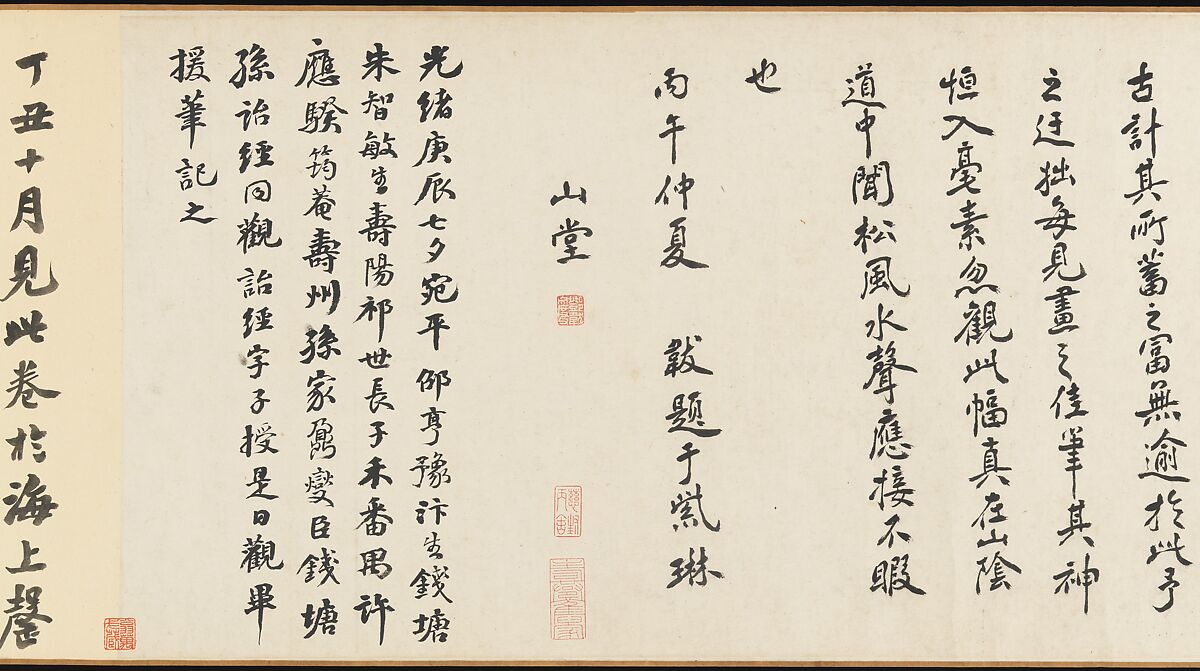 古計其所蓄之富無逾於此予
之迂拙每見畫之佳筆其神
恒入毫素忽觀此幅真在山陰
道中聞松風水聲應接不暇
也
丙午仲夏 載題于紫琳
山堂
光緒庚辰七夕宛平邵亨豫汴生錢塘
朱智敏生壽陽祁世長子禾番禺許
應騤筠菴壽州孫家鼐燮臣錢塘
孫詒經同觀詒經字子授是日觀畢
援筆記之
丁丑十月見此卷於海上罄